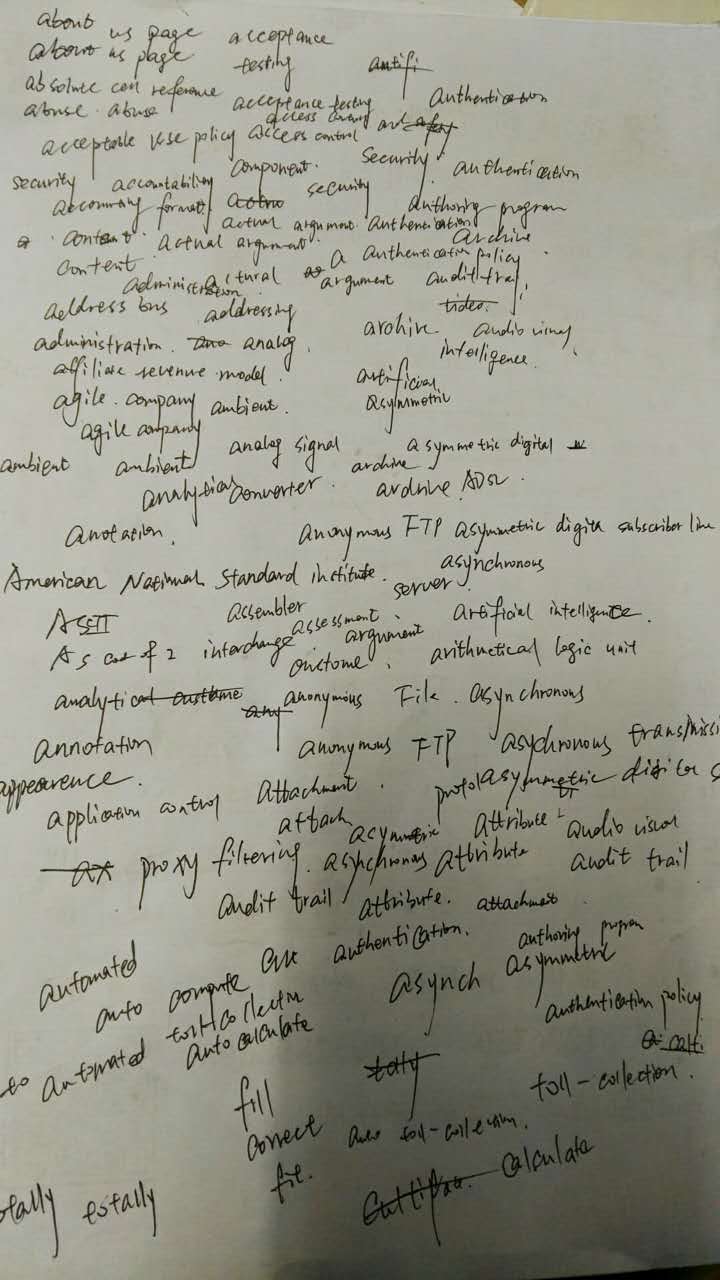 about us page acceptance
about us page testing
absolute cell reference authentication
abuse. abuse acceptance testing
acceptable use policy access control and
security accountability component. security authentication
accounting format. security authoring program
content. actual argument. authentication
content. actual argument. archive
a authentication policy
administration argument audit trail
address bus addressing
administration. analog. archive. audio visual
affiliate revenue model. intelligence.
agile. company ambient. artificial
agile company asymmetric
ambient ambient analog signal asymmetric digital
analytical converter. archive
anotation. archive ADSL.
anonymous FTP asymmetric digital subscriber line
American National Standard institute. asynchronous
server.
ASCII assembler assessment. artificial intelligence.
As code of 2 interchange. argument
outcome. arithmetical logic unit
analytical anonymous File. asynchronous
annotation anonymous FTP asychronous
appearence.
application control attachment.
attach asymmetric attribute audio visual
proxy filtering. asynchronous attribute audit trail
audit trail attribute. attachment
automated authentication. authoring program
auto compute asynch asymmetric
to automated auto calculate authentication policy
fill toll-collection.
correct auto toll-collection.
totally totally fil. calculate